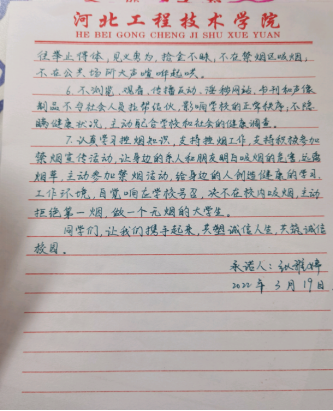 河北工程技术学院
HE BEI GONG CHENG JI SHU XUE YUAN
往举止得体，见义勇为，拾金不昧，不在禁烟区吸烟，
不在公共场所大声喧哗起哄。
6.不浏览、观看、传播反动、淫秽网站、书刊和声像
制品不与社会人员拉帮结伙，影响学校的正常秩序，不隐
瞒健康状况，主动配合学校和社会的健康调查。
7.认真学习控烟知识，支持控烟工作，支持积极参加
禁烟宣传活动，让身边的亲人和朋友明白吸烟的危害，远离
烟草，主动参加禁烟活动，给身边的人创造健康的学习
工作环境，自觉响应学校号召，决不在校内吸烟，主动
拒绝第一烟，做一个无烟的大学生。
同学们，让我们携手起来，共塑诚信人生，共筑诚信
校园。
承诺人：张
2022年3月19日